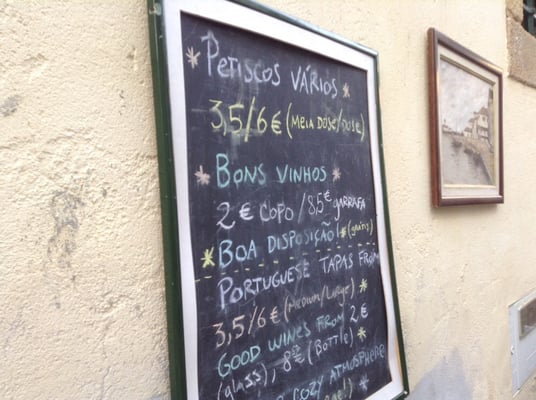 * PETISCOS VÁRIOS *
3,5/6€ (MEIA DOSE/DOSE)
* BONS VINHOS *
2€ COPO / 8,5€ GARRAFA
* BOA DISPOSIÇÃO! * (grátis)
PORTUGUESE TAPAS FROM
3,5/6€ (Medium/Large) *
GOOD WINES FROM 2€
(glass), 8,50€ (Bottle) *
COZY ATMOSPHERE